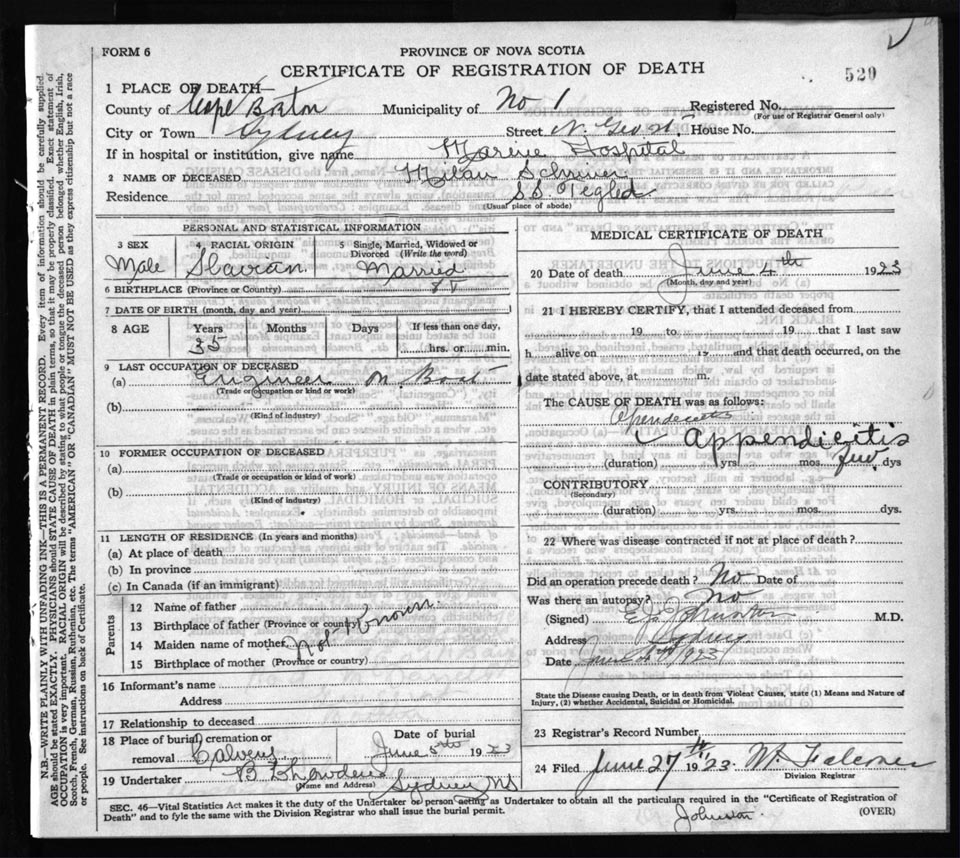 FORM 6
PROVINCE OF NOVA SCOTIA
CERTIFICATE OF REGISTRATION OF DEATH
520
1 PLACE OF DEATH—
County of Cape Breton Municipality of No 1 Registered No.
(For use of Registrar General only)
City or Town Sydney Street N. Geo St. House No.
If in hospital or institution, give name Marine Hospital
2 NAME OF DECEASED Milan
Residence S.S.
(Usual place of abode)
PERSONAL AND STATISTICAL INFORMATION
3 SEX 4 RACIAL ORIGIN 5 Single, Married, Widowed or Divorced (Write the word)
Male Married
6 BIRTHPLACE (Province or Country)
7 DATE OF BIRTH (month, day and year)
8 AGE Years Months Days If less than one day,
35 hrs. or min.
9 LAST OCCUPATION OF DECEASED
(a) Engineer on Boat
(Trade or occupation or kind of work)
(b)
(Kind of industry)
10 FORMER OCCUPATION OF DECEASED
(a)
(Trade or occupation or kind of work)
(b)
(Kind of industry)
11 LENGTH OF RESIDENCE (In years and months)
(a) At place of death
(b) In province
(c) In Canada (if an immigrant)
Parents
12 Name of father
13 Birthplace of father (Province or country)
14 Maiden name of mother Not Known
15 Birthplace of mother (Province or country)
16 Informant's name
Address
17 Relationship to deceased
18 Place of burial, cremation or removal Date of burial
June 5th 1923
19 Undertaker Sydney NS
(Name and Address)
MEDICAL CERTIFICATE OF DEATH
20 Date of death June 4th 1923
(Month, day and year)
21 I HEREBY CERTIFY, that I attended deceased from
19 to 19 that I last saw
h alive on 19 and that death occurred, on the
date stated above, at m.
The CAUSE OF DEATH was as follows:
Appendicitis
(duration) yrs. mos. few dys
CONTRIBUTORY
(Secondary)
(duration) yrs. mos. dys.
22 Where was disease contracted if not at place of death?
Did an operation precede death? No Date of
Was there an autopsy? No
(Signed) Johnston M.D.
Address Sydney
Date June 1923
State the Disease causing Death, or in death from Violent Causes, state (1) Means and Nature of Injury, (2) whether Accidental, Suicidal or Homicidal.
23 Registrar's Record Number
24 Filed June 27th 1923
Division Registrar
SEC. 46—Vital Statistics Act makes it the duty of the Undertaker or person acting as Undertaker to obtain all the particulars required in the "Certificate of Registration of
Death" and to fyle the same with the Division Registrar who shall issue the burial permit.
(OVER)
N.B.—WRITE PLAINLY WITH UNFADING INK—THIS IS A PERMANENT RECORD. Every item of information should be carefully supplied.
AGE should be stated EXACTLY. PHYSICIANS should STATE CAUSE OF DEATH in plain terms, so that it may be properly classified. Exact statement of
OCCUPATION is very important. RACIAL ORIGIN will be described by stating to what people or tongue the deceased person belonged, whether English, Irish,
Scotch, French, German, Russian, Ruthenian, etc. The terms "AMERICAN" OR "CANADIAN" MUST NOT BE USED as they express citizenship but not a race
or people. See instructions on back of Certificate.